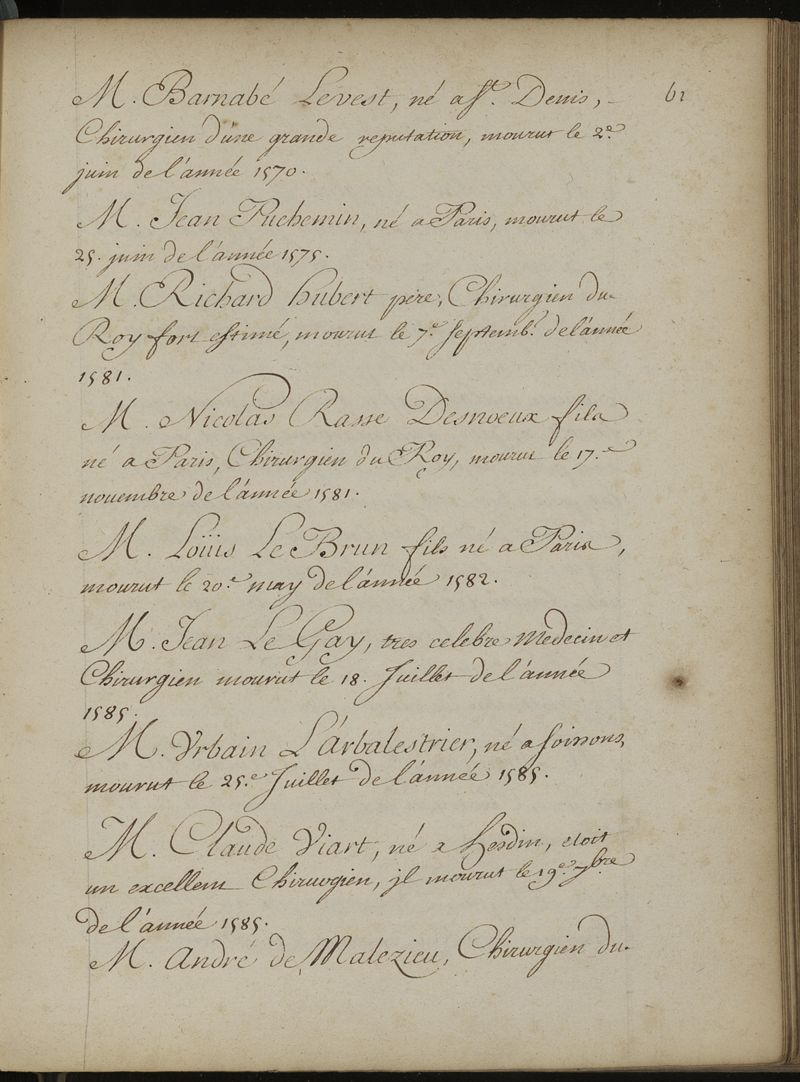 61
M. Barnabé Levest, né a St. Denis,
Chirurgien d'une grande reputation, mourut le 2e
juin de l'année 1570.
M. Jean Puchemin, né a Paris, mourut le
25. juin de l'année 1575.
M. Richard hubert pere, Chirurgien du
Roy fort estimé, mourut le 7e. septembr. de l'année
1581.
M. Nicolas Rasse Desnoeux fils
né a Paris, Chirurgien du Roy, mourut le 17.e
novembre de l'année 1581.
M. Loüis Le Brun fils né a Paris,
mourut le 20.e may de l'année 1582.
M. Jean Le Gay, tres celebre Medecin et
Chirurgien mourut le 18. Juillet de l'année
1585.
M. Vrbain L'arbalestrier, né a soissons,
mourut le 25.e Juillet de l'année 1585.
M. Claude Viart, né a hesdin, etoit
un excellent Chirurgien, jl mourut le 19e. 7bre
de l'année 1585.
M. André de Malezieu, Chirurgien du